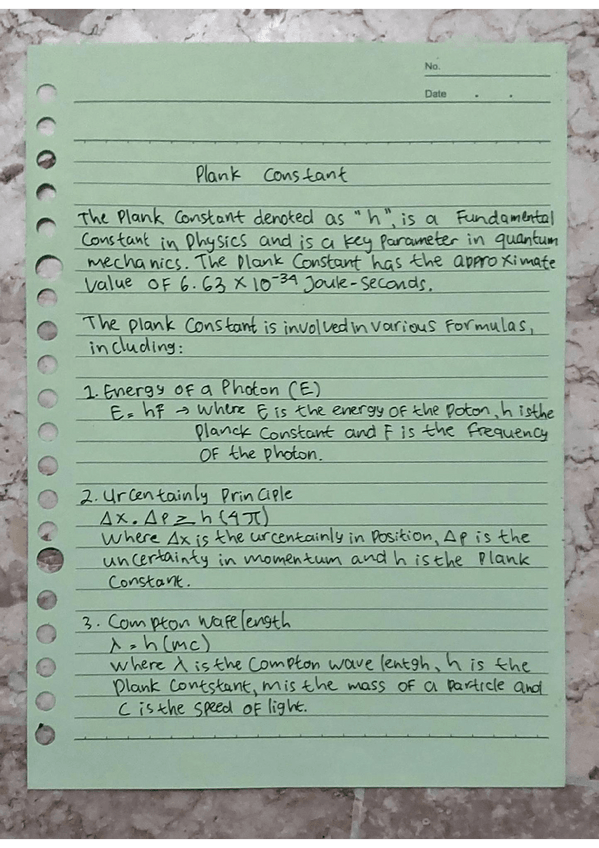 No.
Date . .
Plank Constant
The Plank Constant denoted as "h", is a Fundamental
Constant in Physics and is a key Parameter in quantum
mechanics. The Plank Constant has the approximate
Value OF 6.63 × 10⁻³⁴ Joule-Seconds.
The plank Constant is involved in various Formulas,
including:
1. Energy of a Photon (E)
E = hf → Where E is the energy of the Poton, h is the
Planck Constant and F is the frequency
OF the Photon.
2. Urcentainly Principle
Δx . Δp ≥ h (4π)
Where Δx is the urcentainly in Position, Δp is the
uncertainty in momentum and h is the Plank
Constant.
3. Compton Wafelength
λ = h (mc)
Where λ is the Compton wave lentgh, h is the
Plank Contstant, m is the mass of a Particle and
C is the speed OF light.